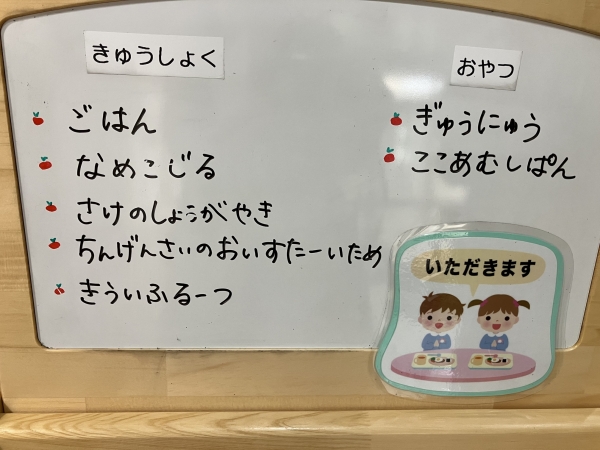 きゅうしょく
ごはん
なめこじる
さけのしょうがやき
ちんげんさいのおいすたーいため
きういふるーつ
おやつ
ぎゅうにゅう
ここあむしぱん
いただきます